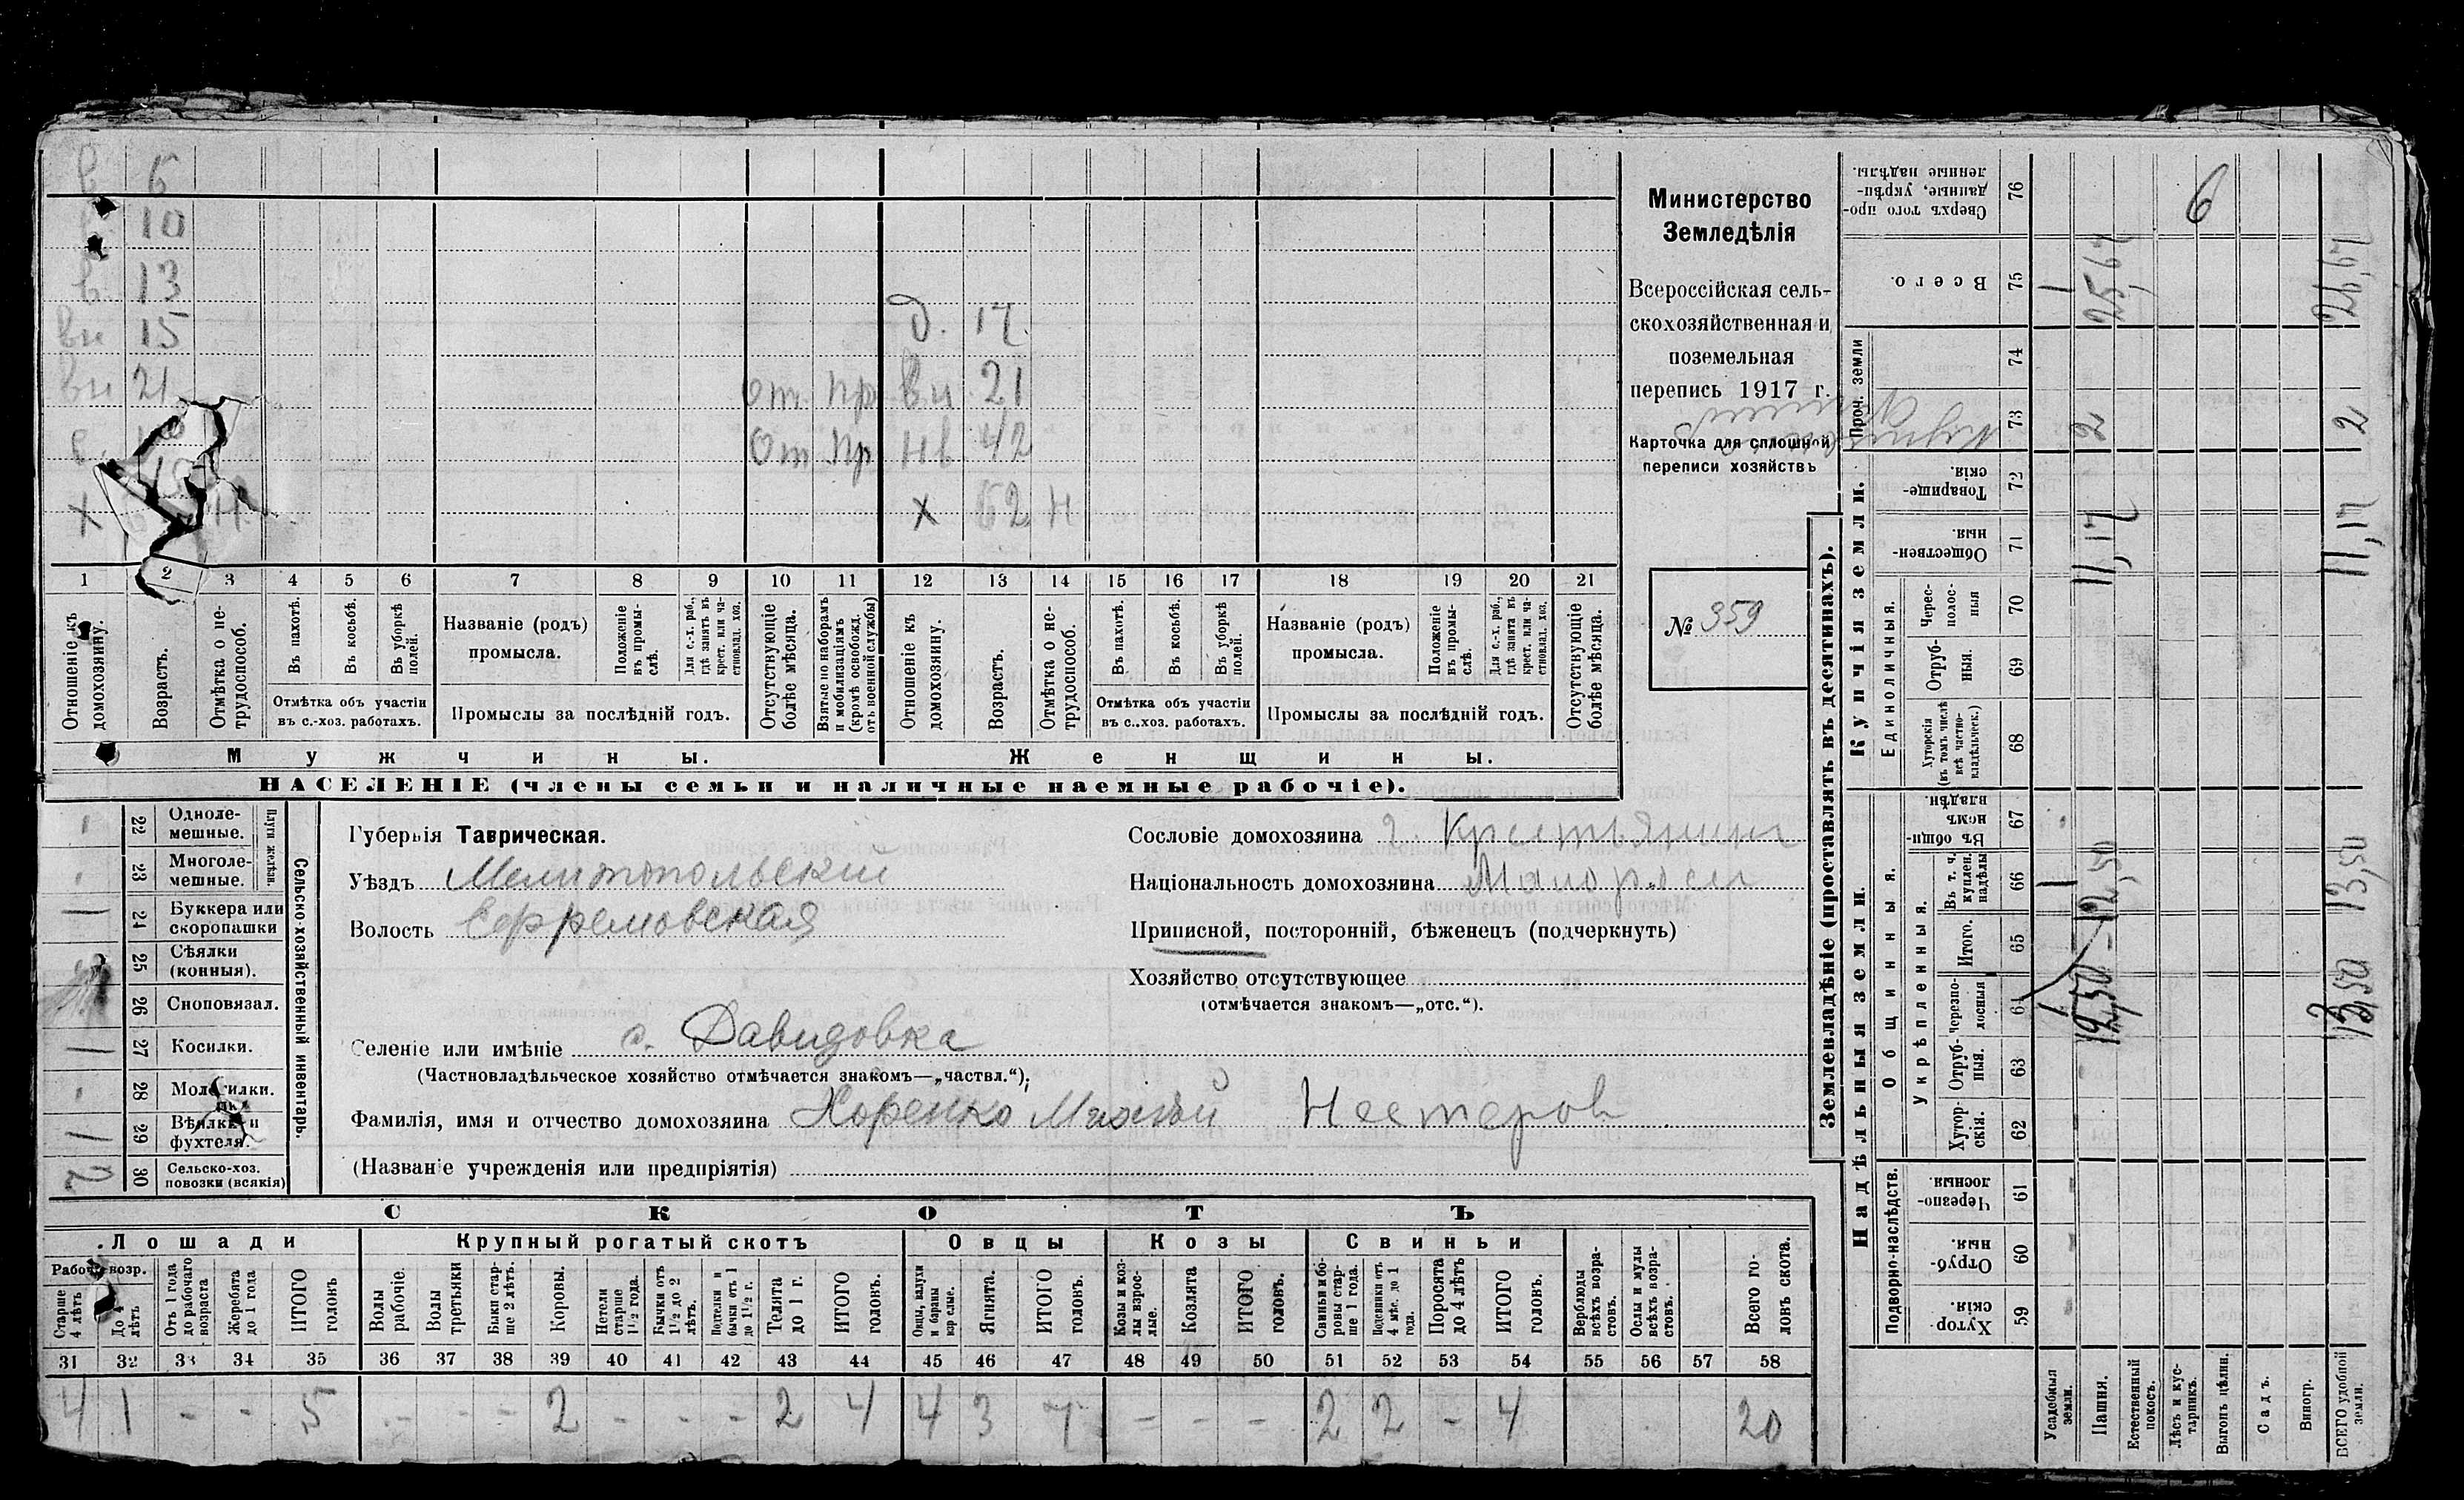 в 6
10
в 13
вн 15 д. 17
вн 21 от пр вн 21
с. от пр нв 42
х Н х 62 Н
1 2 3 4 5 6 7 8 9 10 11 12 13 14 15 16 17 18 19 20 21
Отношеніе къ домохозяину.
Возрастъ.
Отмѣтка о нетрудоспособ.
Въ пахотѣ.
Въ косьбѣ.
Въ уборкѣ полей.
Отмѣтка объ участіи въ с.-хоз. работахъ.
Названіе (родъ) промысла.
Положеніе въ промыслѣ.
Для с.-х. раб., гдѣ занятъ въ крест. или частновлад. хоз.
Промыслы за послѣдній годъ.
Отсутствующіе болѣе мѣсяца.
Взятые по наборамъ и мобилизаціямъ (кромѣ освобожд. отъ военной службы)
Отношеніе къ домохозяину.
Возрастъ.
Отмѣтка о нетрудоспособ.
Въ пахотѣ.
Въ косьбѣ.
Въ уборкѣ полей.
Отмѣтка объ участіи въ с..хоз. работахъ.
Названіе (родъ) промысла.
Положеніе въ промыслѣ.
Для с.-х. раб., гдѣ занята въ крест. или частновлад. хоз.
Промыслы за послѣдній годъ.
Отсутствующіе болѣе мѣсяца.
Мужчины. Женщины.
НАСЕЛЕНІЕ (члены семьи и наличные наемные рабочіе).
Министерство
Земледѣлія
Всероссійская сель-
скохозяйственная и
поземельная
перепись 1917 г.
Карточка для сплошной
переписи хозяйствъ
№ 359
Плуги желѣзн.
22 Однолемешные.
23 Многолемешные.
1 24 Буккера или скоропашки
25 Сѣялки (конныя).
26 Сноповязал.
1 27 Косилки.
28 Молотилки.
1 29 Вѣялки и фухтеля.
2 30 Сельско-хоз. повозки (всякія)
Сельско-хозяйственный инвентарь.
Губернія Таврическая.
Уѣздъ Мелитопольскій
Волость Ефремовская
Сословіе домохозяина Крестьянинъ
Національность домохозяина Малороссъ
Приписной, посторонній, бѣженецъ (подчеркнуть)
Хозяйство отсутствующее
(отмѣчается знакомъ—„отс.“).
Селеніе или имѣніе с. Давидовка
(Частновладѣльческое хозяйство отмѣчается знакомъ—„частвл.“).
Фамилія, имя и отчество домохозяина Хоренко Михаѣй Нестеров
(Названіе учрежденія или предпріятія)
СКОТЪ
Лошади Крупный рогатый скотъ Овцы Козы Свиньи
Рабоч. возр.
Старше 4 лѣтъ
До 4 лѣтъ
Отъ 1 года до рабочаго возраста
Жеребята до 1 года
ИТОГО головъ
Волы рабочіе.
Волы третьяки
Быки старше 2 лѣтъ.
Коровы.
Нетели старше 1½ года.
Бычки отъ 1½ до 2 лѣтъ.
Подтелки и бычки отъ 1 до 1½ г.
Телята до 1 г.
ИТОГО головъ.
Овцы, валухи и бараны взрослые.
Ягнята.
ИТОГО головъ.
Козы и козлы взрослые.
Козлята
ИТОГО головъ.
Свиньи и боровы старше 1 года.
Подсвинки отъ 4 мѣс. до 1 года.
Поросята до 4 лѣтъ
ИТОГО головъ.
Верблюды всѣхъ возрастовъ.
Ослы и мулы всѣхъ возрастовъ.
Всего головъ скота.
31 32 33 34 35 36 37 38 39 40 41 42 43 44 45 46 47 48 49 50 51 52 53 54 55 56 57 58
4 1 - - 5 - - - 2 - - - 2 4 4 3 7 - - - 2 2 - 4 20
Землевладѣніе (проставлять въ десятинахъ).
Надѣльныя земли. Купчія земли. Проч. земли
Подворно-наследств.
Общинныя.
Укрѣпленныя.
Единоличныя.
59 Хуторскія.
60 Отрубныя.
61 Черезполосныя.
62 Хуторскія.
63 Отрубныя.
64 Черезполосныя
65 Итого.
66 Въ т. ч. куплен. надѣлы
67 Въ общинномъ владѣн.
68 Хуторскія (въ томъ числѣ всѣ частновладѣльческ.)
69 Отрубныя.
70 Чересполосныя
71 Общественныя.
72 Товарищескія.
73
74
75 Всего.
76 Сверхъ того проданные, укрѣпленные надѣлы.
Усадебныя земли. 1 1 1
Пашня. 12,50 12,50 11,17 2 25,67
Естественный покосъ.
Лѣсъ и кустарникъ.
Выгонъ цѣлин. 6
Садъ.
Виногр.
ВСЕГО удобной земли. 13,50 13,50 11,17 2 26,67